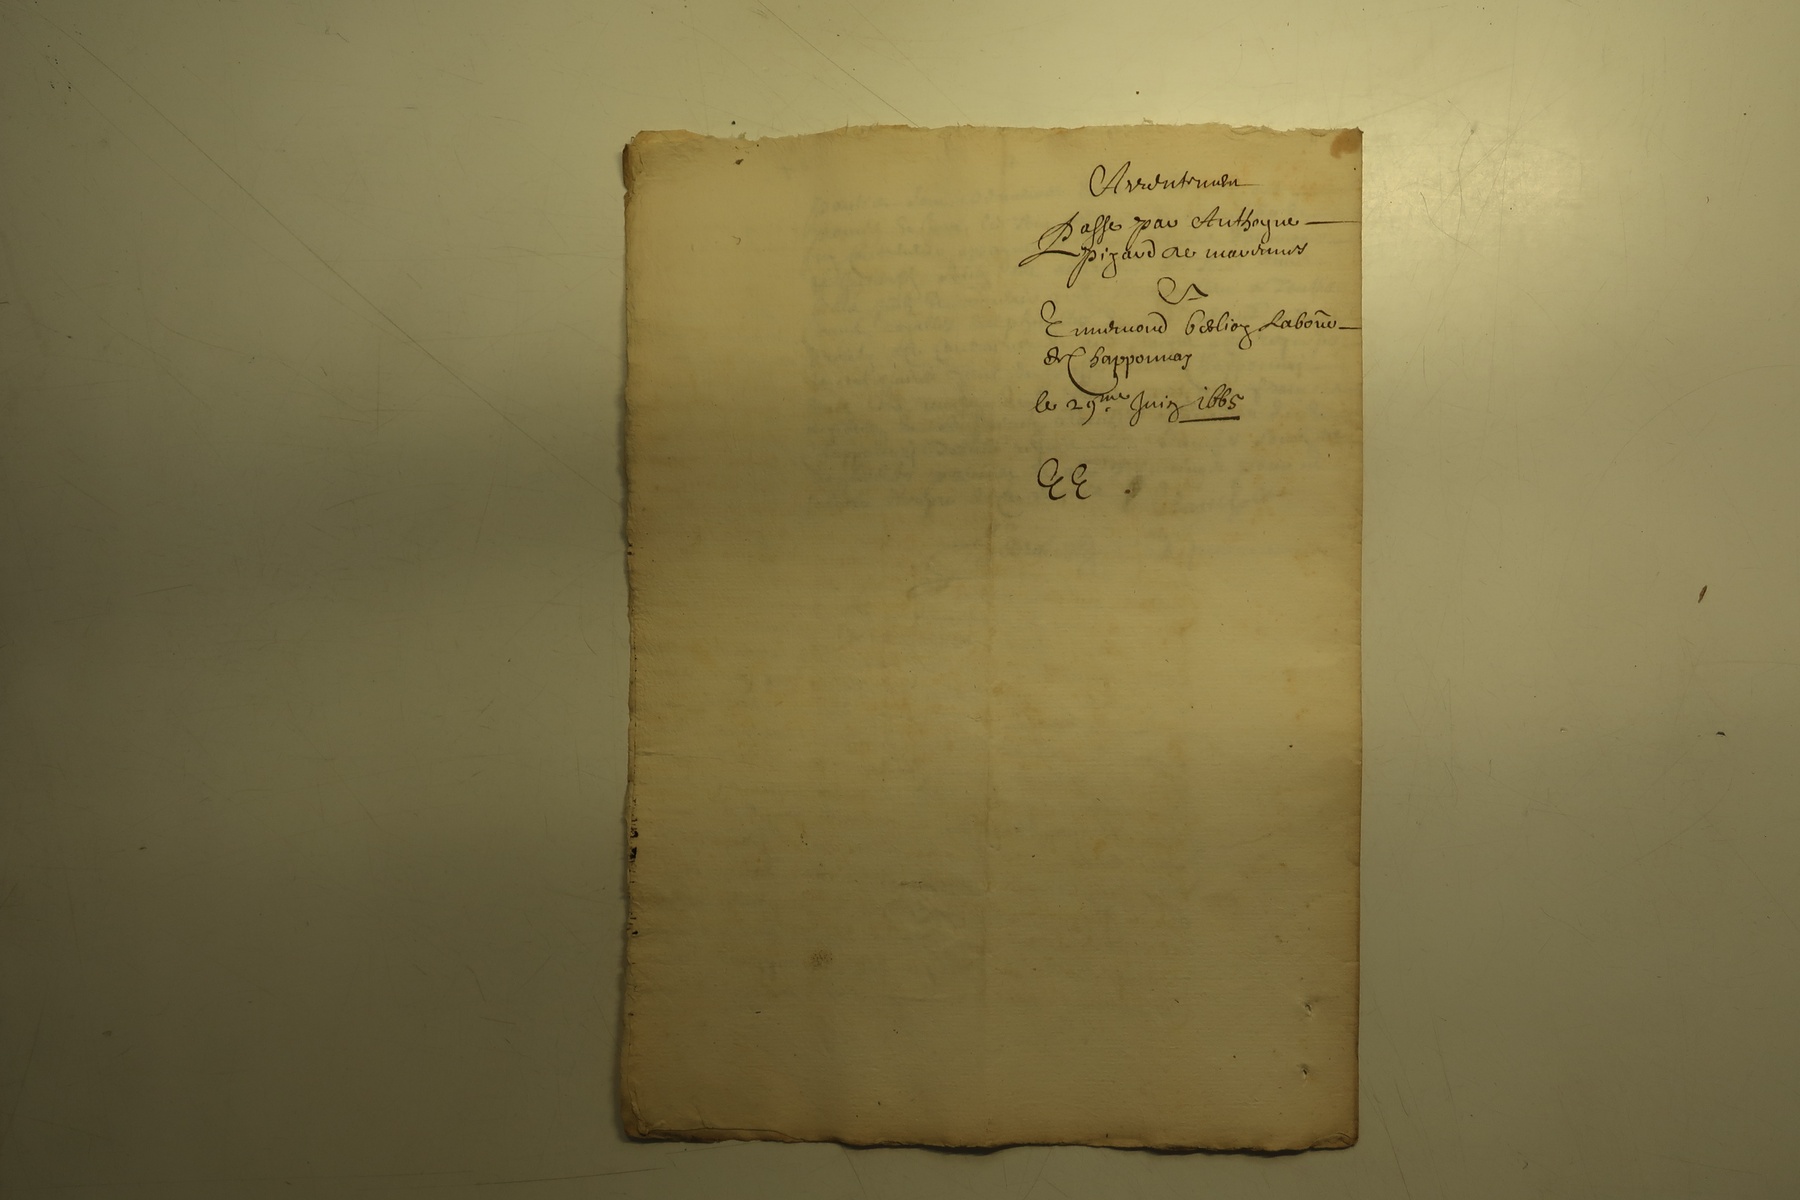 Arrentemen
Passe par Anthoyne
pigard de marennes
A
Ennemond belioz Labore
de Chapponnay
le 29me Juin 1665
EE